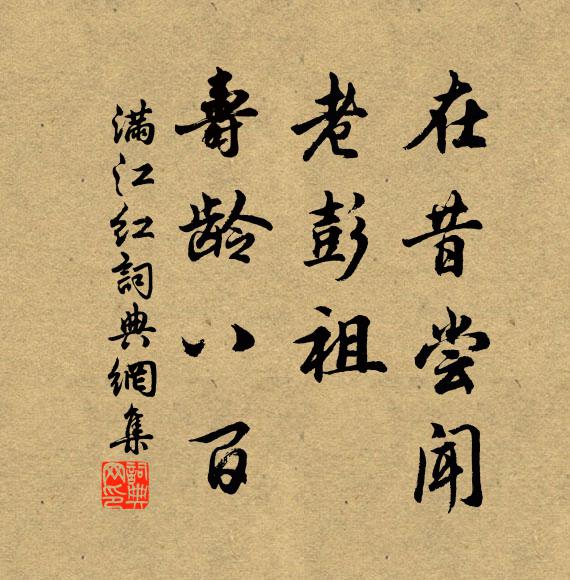 在昔尝闻
老彭祖
寿龄八百
满江红詞典網集
詞典
网印